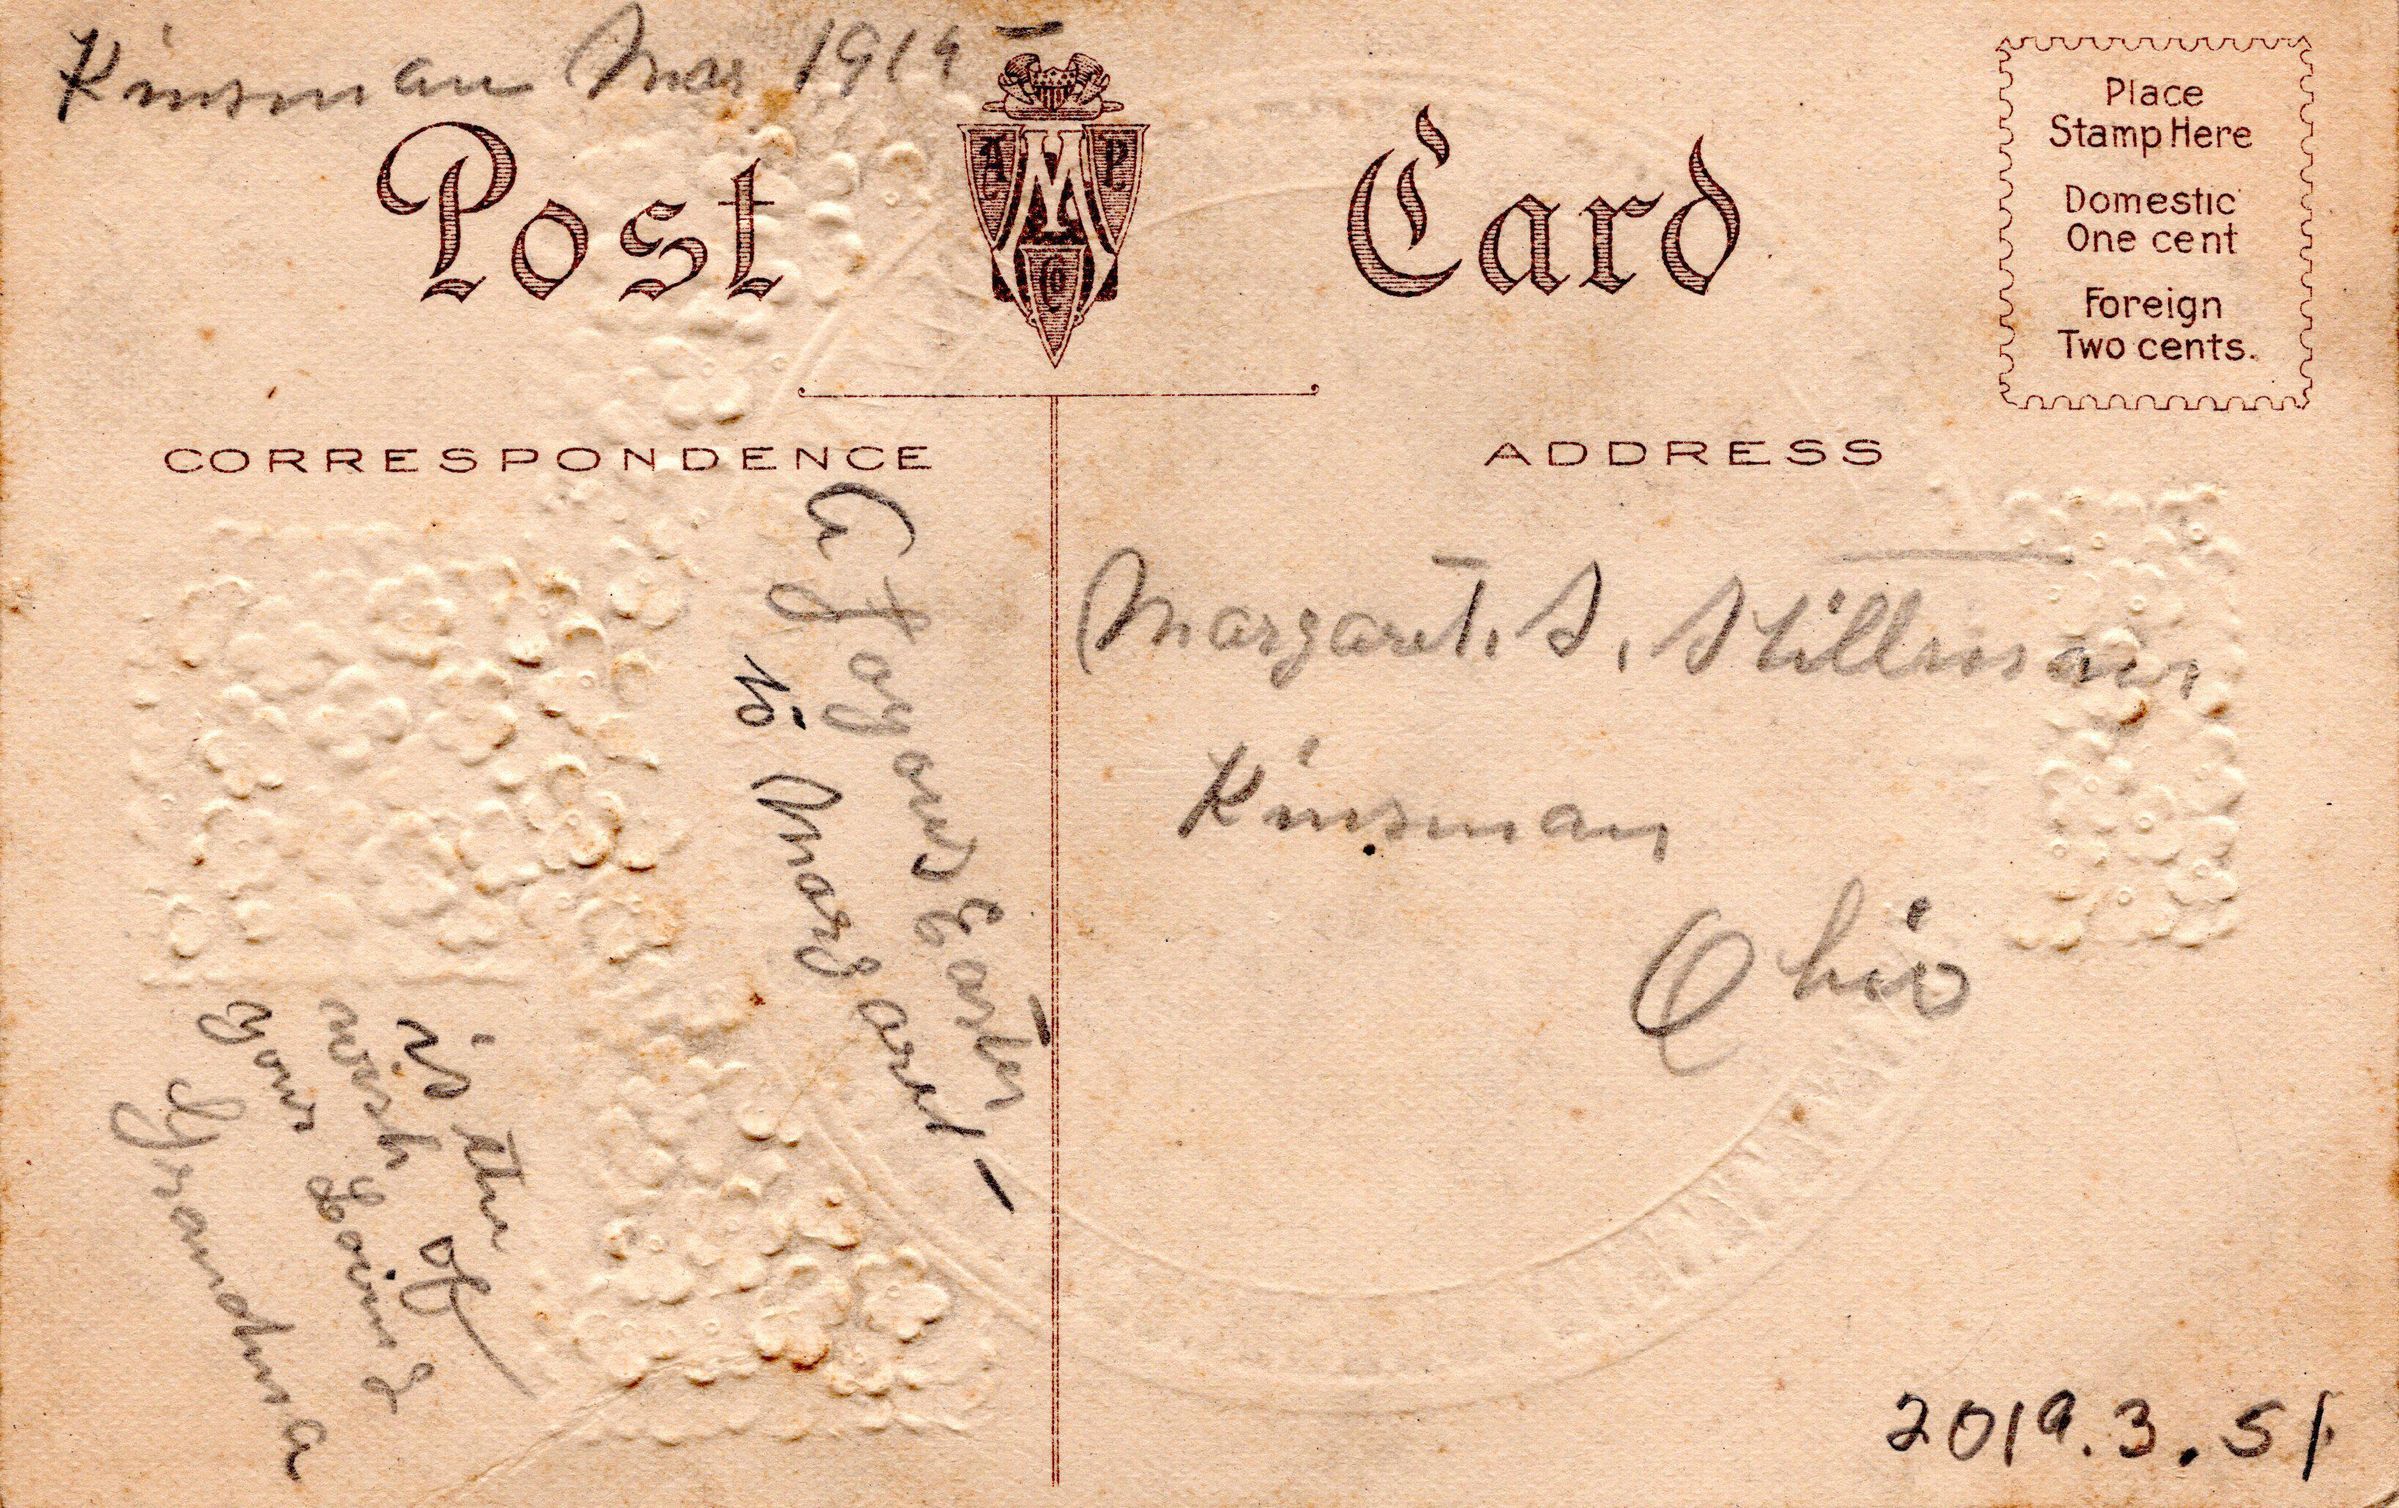 Kinsman Mar 1914
Post Card
A M P
Co
Place
Stamp Here
Domestic
One cent
Foreign
Two cents.
CORRESPONDENCE
ADDRESS
A Joyous Easter
to Margaret
is the
wish of
your Loving
Grandma
Margaret. S. Stillman
Kinsman
Ohio
2019.3.51